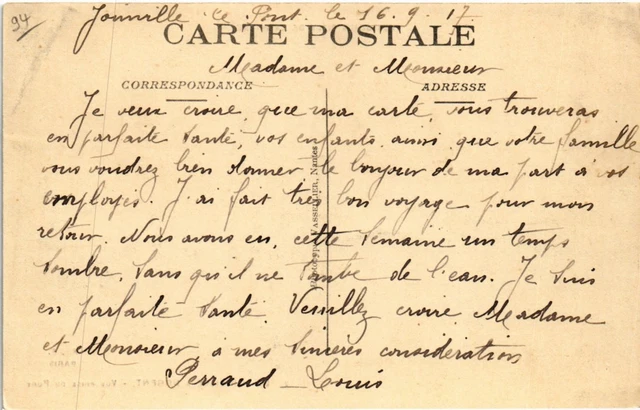 94
Joinville le Pont le 16.9.17
CARTE POSTALE
Madame et Monsieur
CORRESPONDANCE
ADRESSE
Je veux croire, que ma carte, vous trouveras
en parfaite santé, vos enfants ainsi que votre famille
vous voudrez bien donner le bonjour de ma part à vos
employés. J'ai fait très bon voyage pour mon
retour. Nous avons eu, cette semaine un temps
sombre, sans qu'il ne tombe de l'eau. Je suis
en parfaite santé Veuillez croire Madame
et Monsieur, à mes sincères considération
Perraud Louis
Nantes